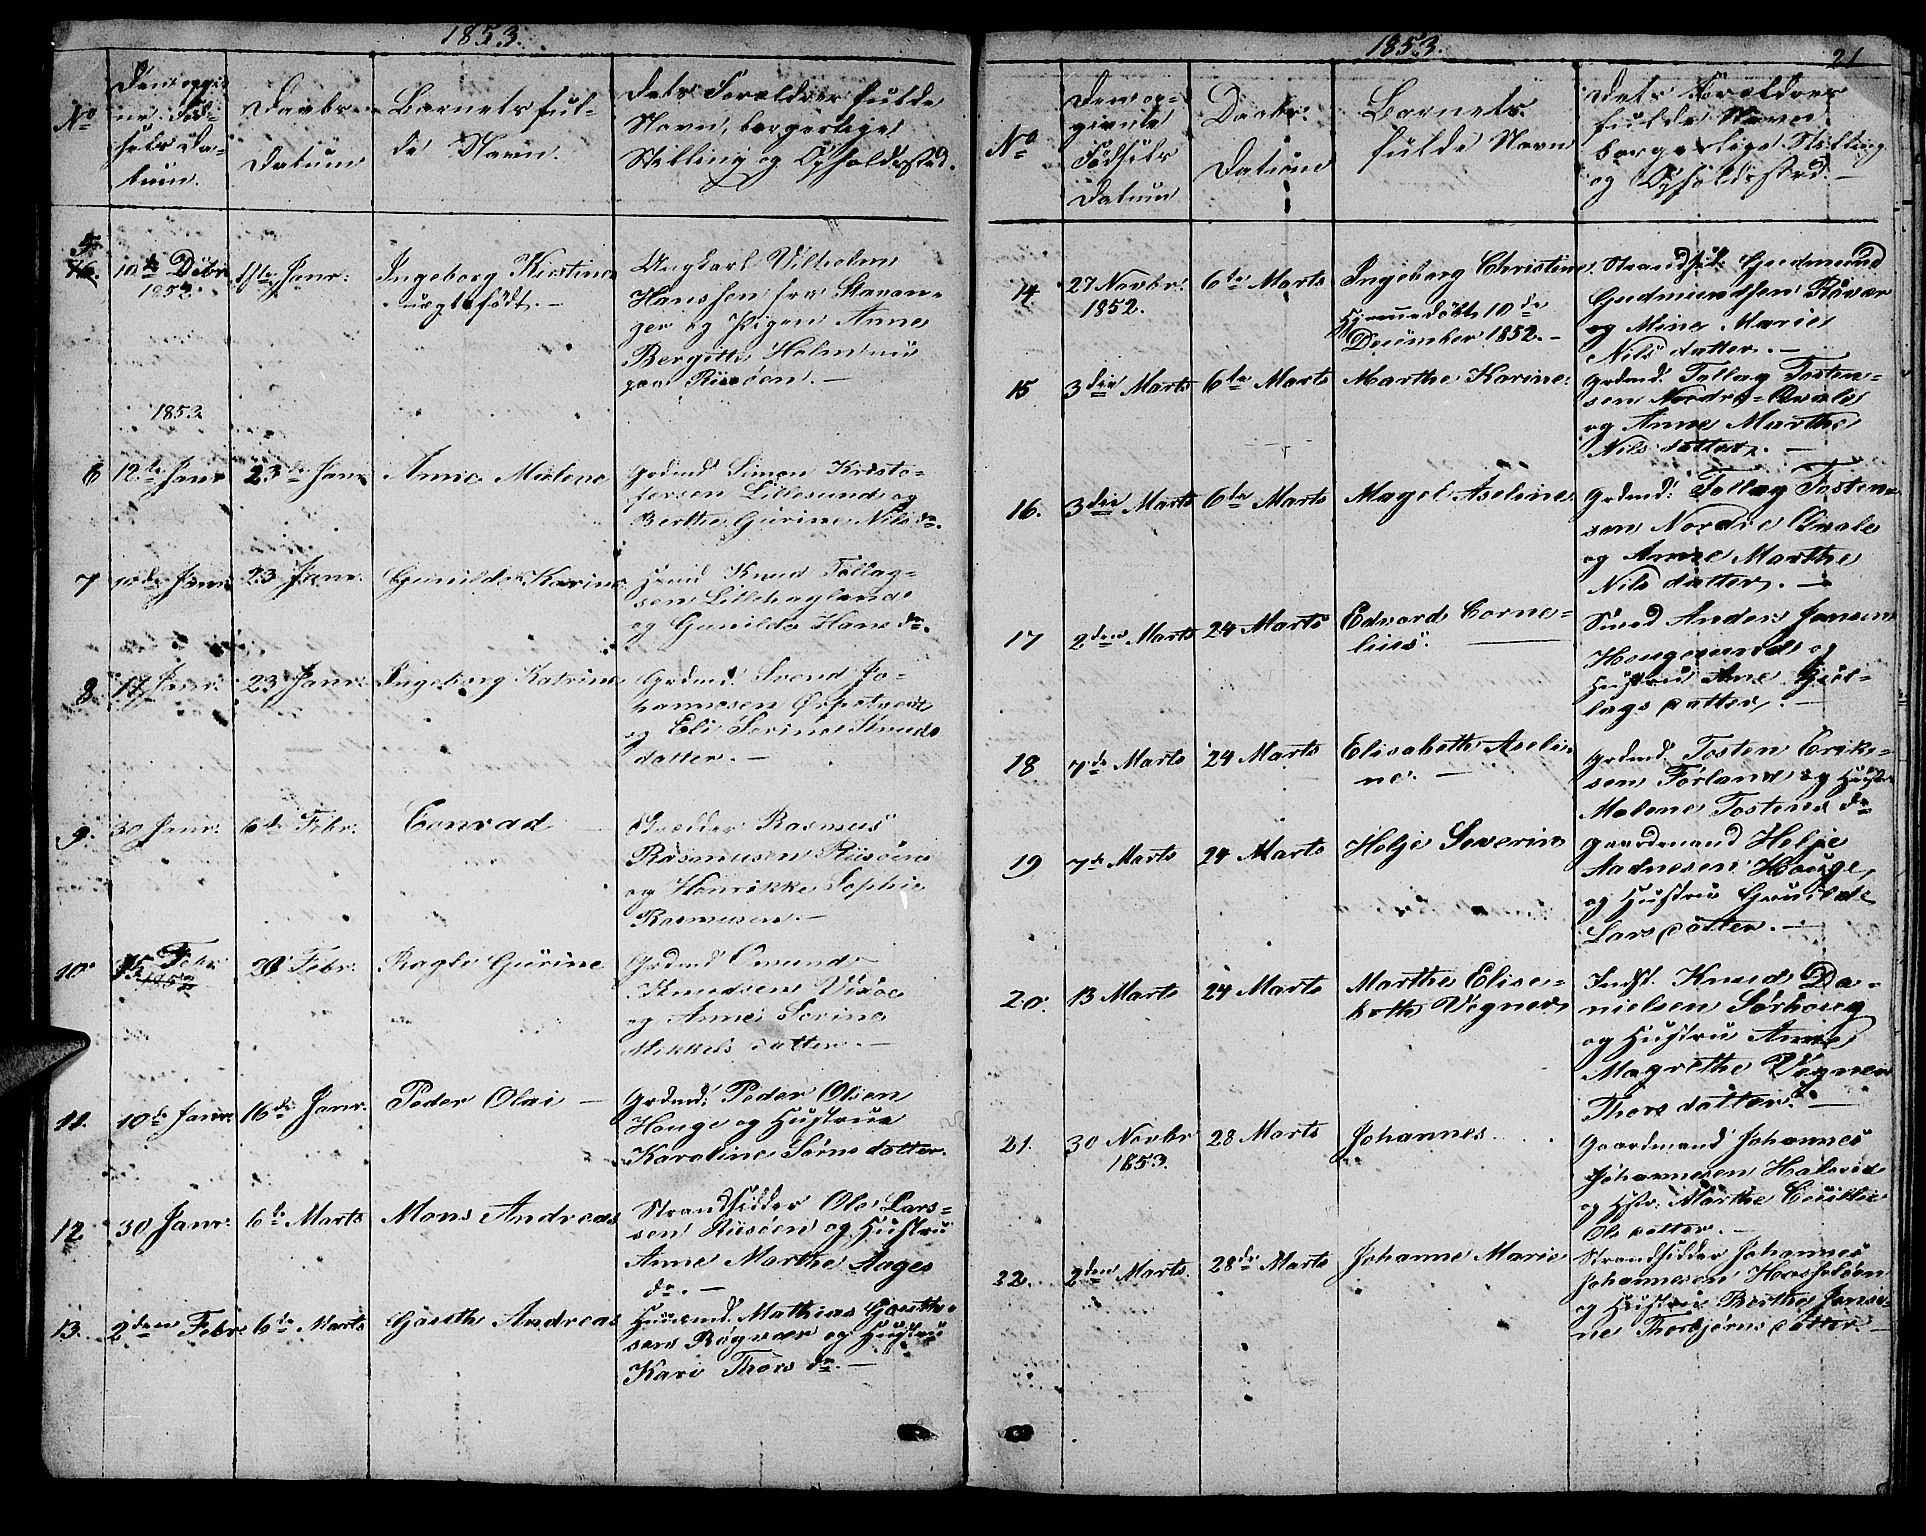 1853.
No
Den opgiv
ne Fød-
sels Da-
tum.
Daabs-
Datum
Barnets ful-
de Navn.
Dets Forældres fulde
Navn, borgerlige
Stilling og Opholdssted.
5
10de Debr
1852
Janr:
Ingeborg Kirstine
uægtefødt. -
Ungkarl Vilhelm
Hanssen fra Stavan-
ger og Pigen Anne
Bergitte Holm nu
paa Risøen. -
1853
6
12te Janr
23de Janr
Anne Malene
Grdmd Simon Kristo-
fersen Lillesund og
Berthe Gurine Nils dr.
7
Janr
23 Janr:
Gunilde Karine
Husmd Knud Tollag-
sen Lillehaylande
og Gunilde Hans dr.
8
17 Janr:
23 Janr:
Ingeborg Katrine
Grdmd. Svend Jo-
hannesen
og Eli Serine Knuds
datter. -
9.
30 Janr:
6te Febr:
Conrad
Rasmus
Rasmusen Risøen
og Henrikke Sophie
Rasmusen. -
10.
15 Febr
20 Febr:
Ragle Gurine
Grdmd Omund
Knudsen Vixøe
og Anne Serine
Mikkels datter. -
11.
10de Janr.
16de Janr.
Peder Olai -
Grdmd: Peder Olsen
Houge og Hustrue
Karoline Sørns datter.
12
30 Janr:
6te Marts
Mons Andreas
Strandsidder Ole Lars-
sen Risøen og Hustru
Anne Marthe Aages
dr. -
13.
2den Febr
6te Marts
Gauthe Andreas
Husmd. Mathias Gauthe-
sen Røgvær og Hustru
Kari Thors dr. -
1853.
21
No
Den op-
givne
Fødsels
Datum
Daabs:
Datum
Barnets
fulde Navn
Dets Forældres
fulde Navn,
borgerlige Stilling
og Opholdssted. -
14
27 Novbr:
1852.
6te Marts
Ingeborg Christine
Hjemmedøbt 10de
December 1852. -
Strands: Gudmund
Gudmundsen Røvær
og Mine Marie
Nils datter. -
15
3die Marts
6te Marts
Marthe Karine.
Grdmd. Tollag Tosten-
sen Nordre Qvale
og Anne Marthe
Nils datter. -
16.
3die Marts
6te Marts
Magel Aseline
Grdmd: Tollag Tosten-
sen Nordre Qvale
og Anne Marthe
Nils datter. -
17
2den Marts
24 Marts
Edvard Corne-
lius.
Smed Anders Jansen
Hougesund og
Hustru Ane Gjøl-
lags datter. -
18
7de Marts
24 Marts
Elisabeth Aseli-
ne. -
Grdmd. Tosten Erik-
sen Førland og Hustr
Malene Tostens dr
19
7de Marts
24 Marts
Helje Severin
Gaardmand Helje
Aadnesen Houge,
og Hustru Gunilde
Lars datter. -
20.
13 Marts
24 Marts
Marthe Elise-
beth Vogner
Indst. Knud Da-
nielsen Sørhoug
og Hustru Anne
Magrethe Vogner
Thors datter. -
21.
30 Novbr
1853.
28 Marts
Johannes
Gaardmand Johannes
Johannesen
og Hstr: Marthe Cecilie
Ols datter. -
22.
2den Marts.
28de Marts
Johanne Marie
Strandsidder Johannes
Johannesen Hasseløen
og Hustru Berthe Jensi-
ne Thorbjørns datter. -